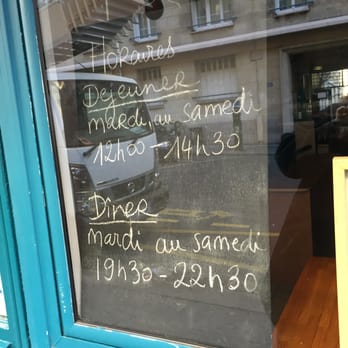 Horaires
Dejeuner
mardi au samedi
12h00 - 14h30
Dîner
mardi au samedi
19h30 - 22h30